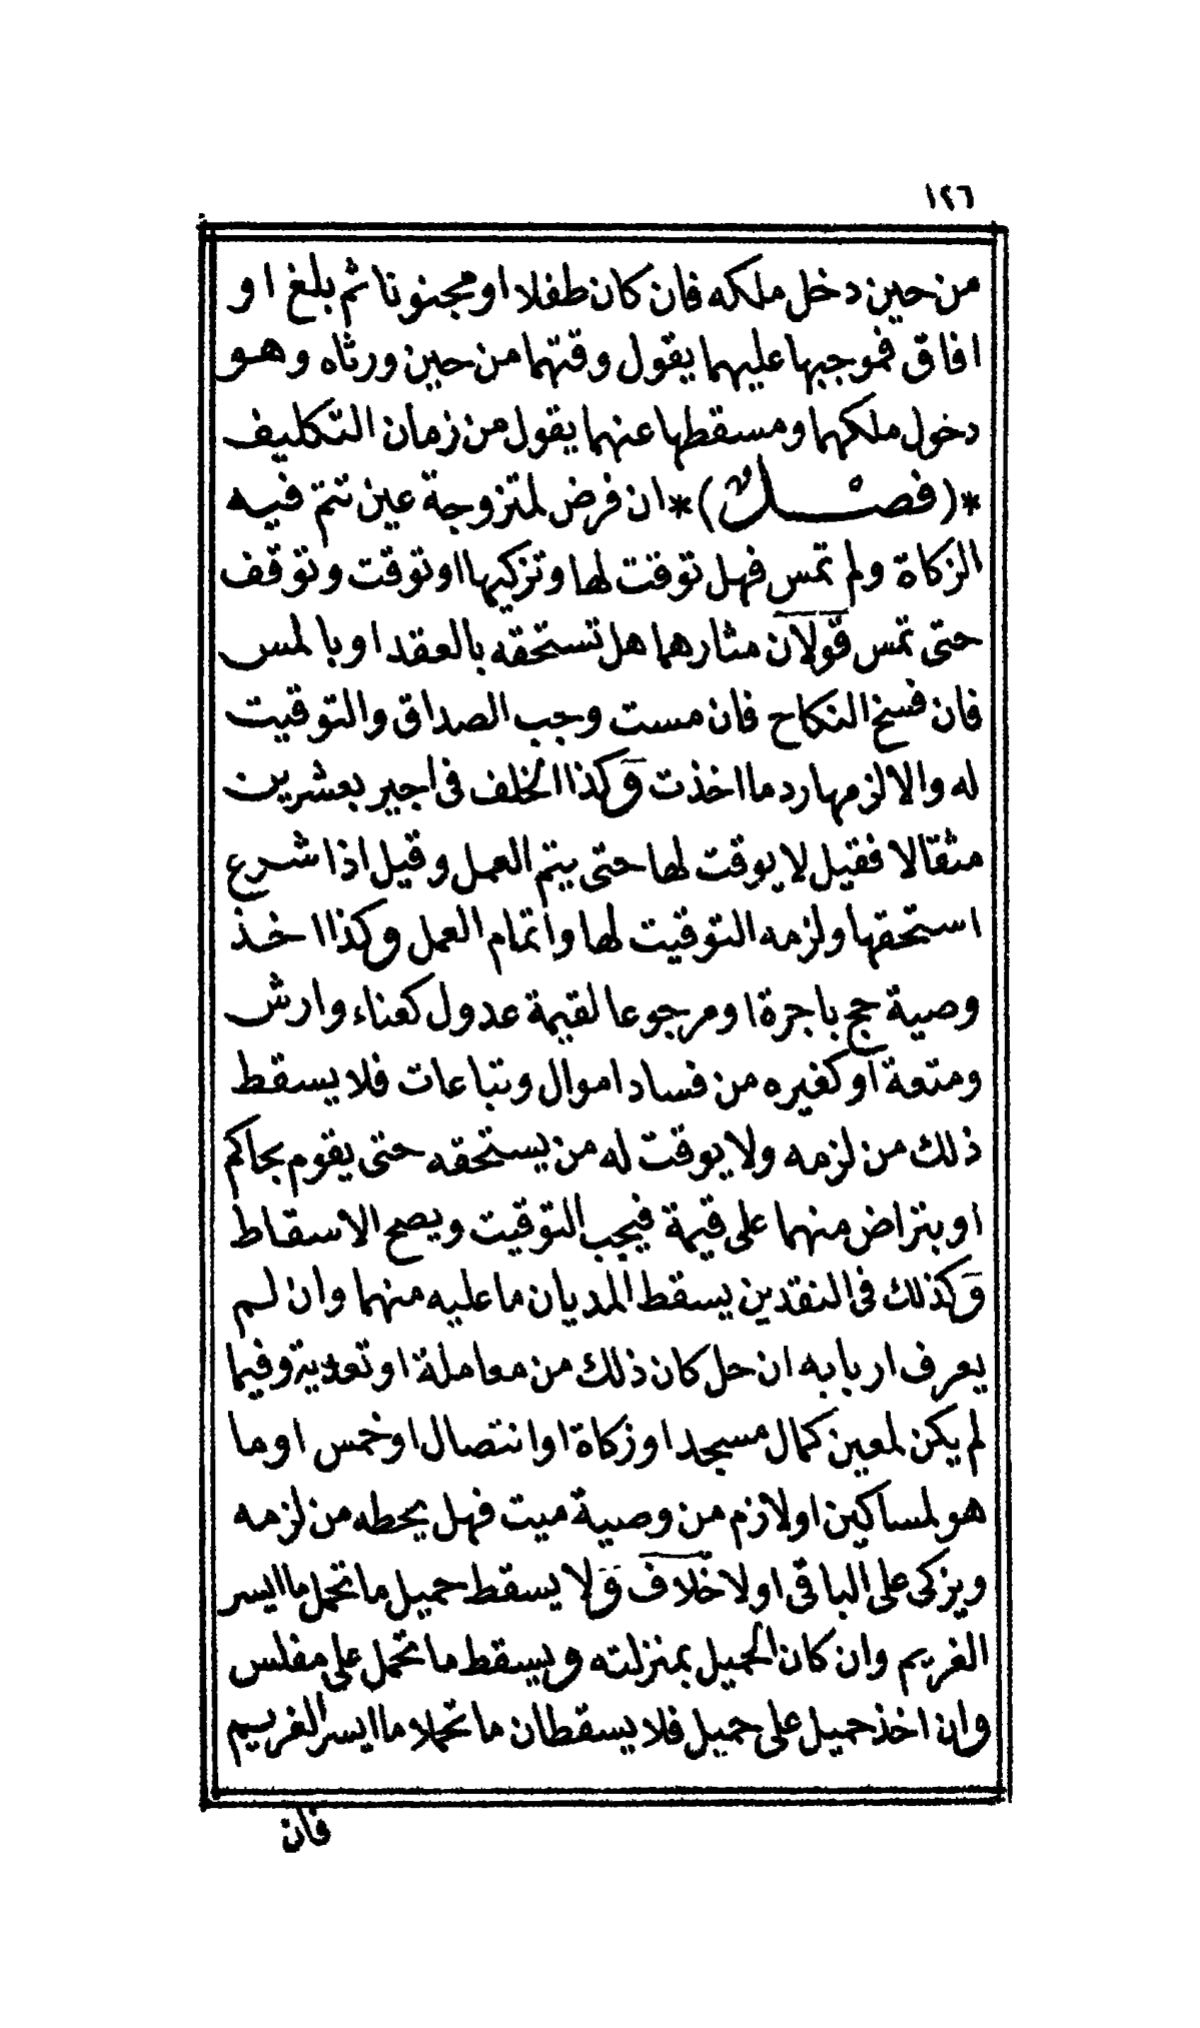 ١٢٦
من حين دخل ملكه فان كان طفلا او مجنونا ثم بلغ او
افاق فموجبها عليهما يقول وقتهما من حين ورثاه وهو
دخول ملكهما ومسقطها عنهما يقول من زمان التكليف
*(فصل)* ان فرض لمتزوجة عين تتم فيه
الزكاة ولم تمس فهل توقت لها وتزكيها او توقت وتوقف
حتى تمس قولان مثارهما هل تستحقه بالعقد او بالمس
فان فسخ النكاح فان مست وجب الصداق والتوقيت
له والا لزمها رد ما اخذت وكذا الخلف في اجير بعشرين
مثقالا فقيل لا يوقت لها حتى يتم العمل وقيل اذا شرع
استحقها ولزمه التوقيت لها واتمام العمل وكذا اخذ
وصية حج باجرة او مرجوعا لقيمة عدول كعناء وارش
ومتعة او كغيره من فساد اموال وتباعات فلا يسقط
ذلك من لزمه ولا يوقت له من يستحقه حتى يقوم بحاكم
او بتراض منهما على قيمة فيجب التوقيت ويصح الاسقاط
وكذلك في النقدين يسقط المديان ما عليه منهما وان لم
يعرف اربابه ان حل كان ذلك من معاملة او تعدية وفيما
لم يكن لمعين كمال مسجد او زكاة او انتصال او خمس او ما
هو لمساكين او لازم من وصية ميت فهل يحطه من لزمه
ويزكى على الباقى او لا خلاف ولا يسقط حميل ما تحمل ما ايسر
الغريم وان كان الحميل بمنزلته ويسقط ما تحمل على مفلس
وان اخذ حميل على حميل فلا يسقطان ما تحملا ما ايسر الغريم
فان